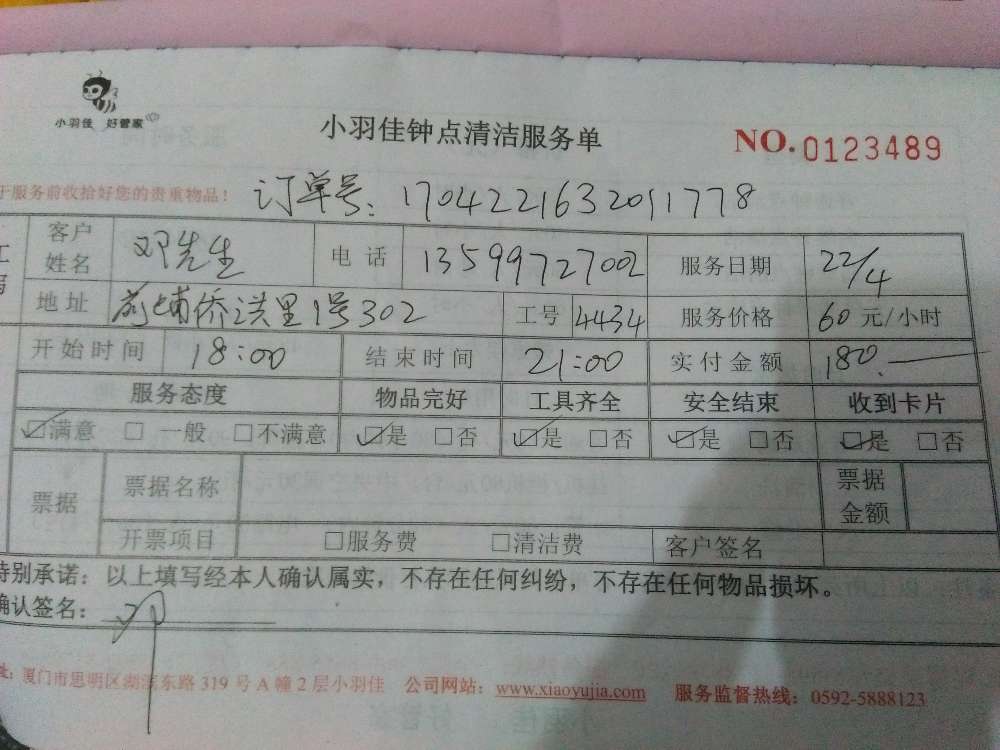 小羽佳 好管家
小羽佳钟点清洁服务单
NO.0123489
于服务前收拾好您的贵重物品！
订单号：1704221632011778
客户姓名 邓先生 电话 13599727002 服务日期 22/4
地址 侨洪里1号302 工号 4434 服务价格 60 元/小时
开始时间 18:00 结束时间 21:00 实付金额 180.—
服务态度 物品完好 工具齐全 安全结束 收到卡片
☑满意 □一般 □不满意 ☑是 □否 ☑是 □否 ☑是 □否 ☑是 □否
票据 票据名称 票据金额
开票项目 □服务费 □清洁费 客户签名
特别承诺：以上填写经本人确认属实，不存在任何纠纷，不存在任何物品损坏。
确认签名：邓
址：厦门市思明区湖滨东路 319 号 A 幢 2 层小羽佳 公司网站：www.xiaoyujia.com 服务监督热线：0592-5888123